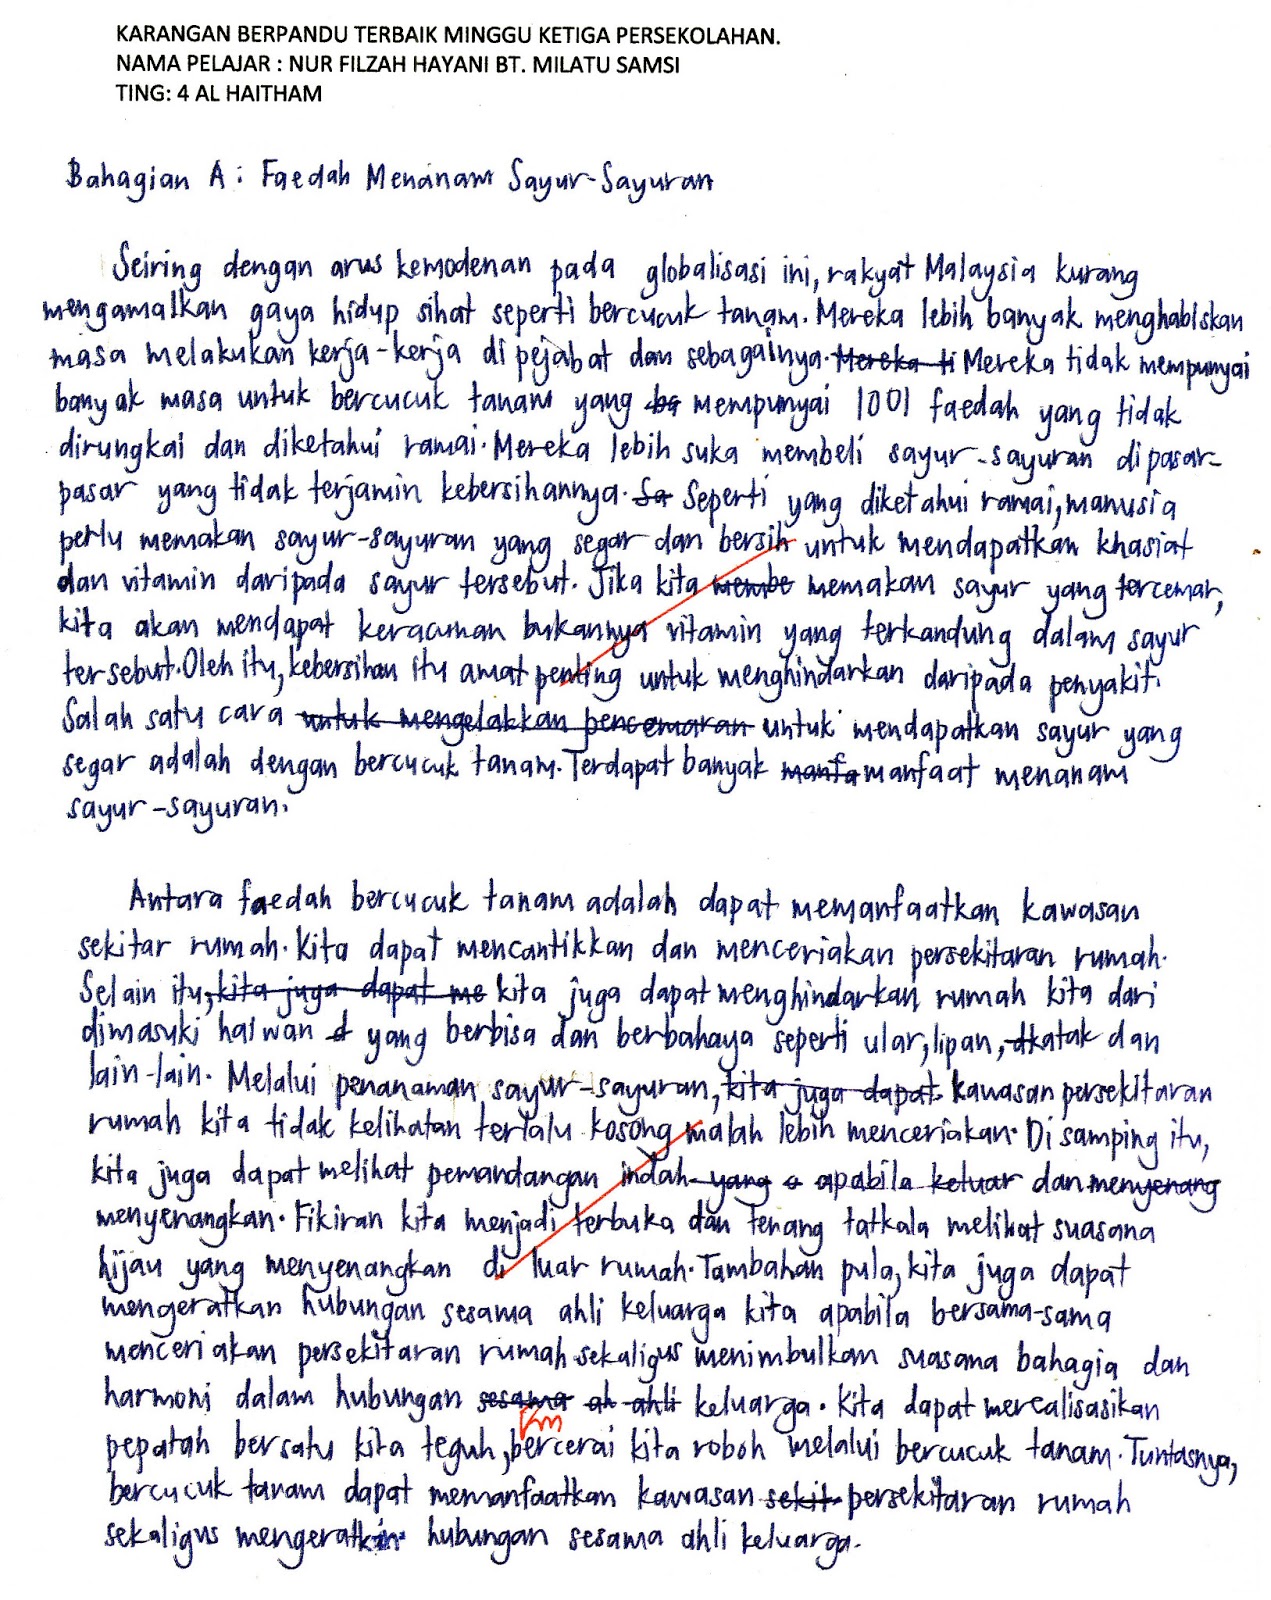 KARANGAN BERPANDU TERBAIK MINGGU KETIGA PERSEKOLAHAN.
NAMA PELAJAR : NUR FILZAH HAYANI BT. MILATU SAMSI
TING: 4 AL HAITHAM
Bahagian A : Faedah Menanam Sayur-Sayuran
Seiring dengan arus kemodenan pada globalisasi ini, rakyat Malaysia kurang
mengamalkan gaya hidup sihat seperti bercucuk tanam. Mereka lebih banyak menghabiskan
masa melakukan kerja-kerja di pejabat dan sebagainya. Mereka ti Mereka tidak mempunyai
banyak masa untuk bercucuk tanam yang ba mempunyai 1001 faedah yang tidak
dirungkai dan diketahui ramai. Mereka lebih suka membeli sayur-sayuran di pasar-
pasar yang tidak terjamin kebersihannya. Sa Seperti yang diketahui ramai, manusia
perlu memakan sayur-sayuran yang segar dan bersih untuk mendapatkan khasiat
dan vitamin daripada sayur tersebut. Jika kita membe memakan sayur yang tercemar,
kita akan mendapat keracunan bukannya vitamin yang terkandung dalam sayur
tersebut. Oleh itu, kebersihan itu amat penting untuk menghindarkan daripada penyakit.
Salah satu cara untuk mengelakkan pencemaran untuk mendapatkan sayur yang
segar adalah dengan bercucuk tanam. Terdapat banyak manfa manfaat menanam
sayur-sayuran.
Antara faedah bercucuk tanam adalah dapat memanfaatkan kawasan
sekitar rumah. Kita dapat mencantikkan dan menceriakan persekitaran rumah.
Selain itu, kita juga dapat me kita juga dapat menghindarkan rumah kita dari
dimasuki haiwan d yang berbisa dan berbahaya seperti ular, lipan, katak dan
lain-lain. Melalui penanaman sayur-sayuran, kita juga dapat kawasan persekitaran
rumah kita tidak kelihatan terlalu kosong malah lebih menceriakan. Di samping itu,
kita juga dapat melihat pemandangan indah yang a apabila keluar dan menyenang
menyenangkan. Fikiran kita menjadi terbuka dan tenang tatkala melihat suasana
hijau yang menyenangkan di luar rumah. Tambahan pula, kita juga dapat
mengeratkan hubungan sesama ahli keluarga kita apabila bersama-sama
menceriakan persekitaran rumah sekaligus menimbulkan suasana bahagia dan
harmoni dalam hubungan sesama ah ahli keluarga. Kita dapat merealisasikan
pepatah bersatu kita teguh, bercerai kita roboh melalui bercucuk tanam. Tuntasnya,
bercucuk tanam dapat memanfaatkan kawasan sekit persekitaran rumah
sekaligus mengeratkan hubungan sesama ahli keluarga.